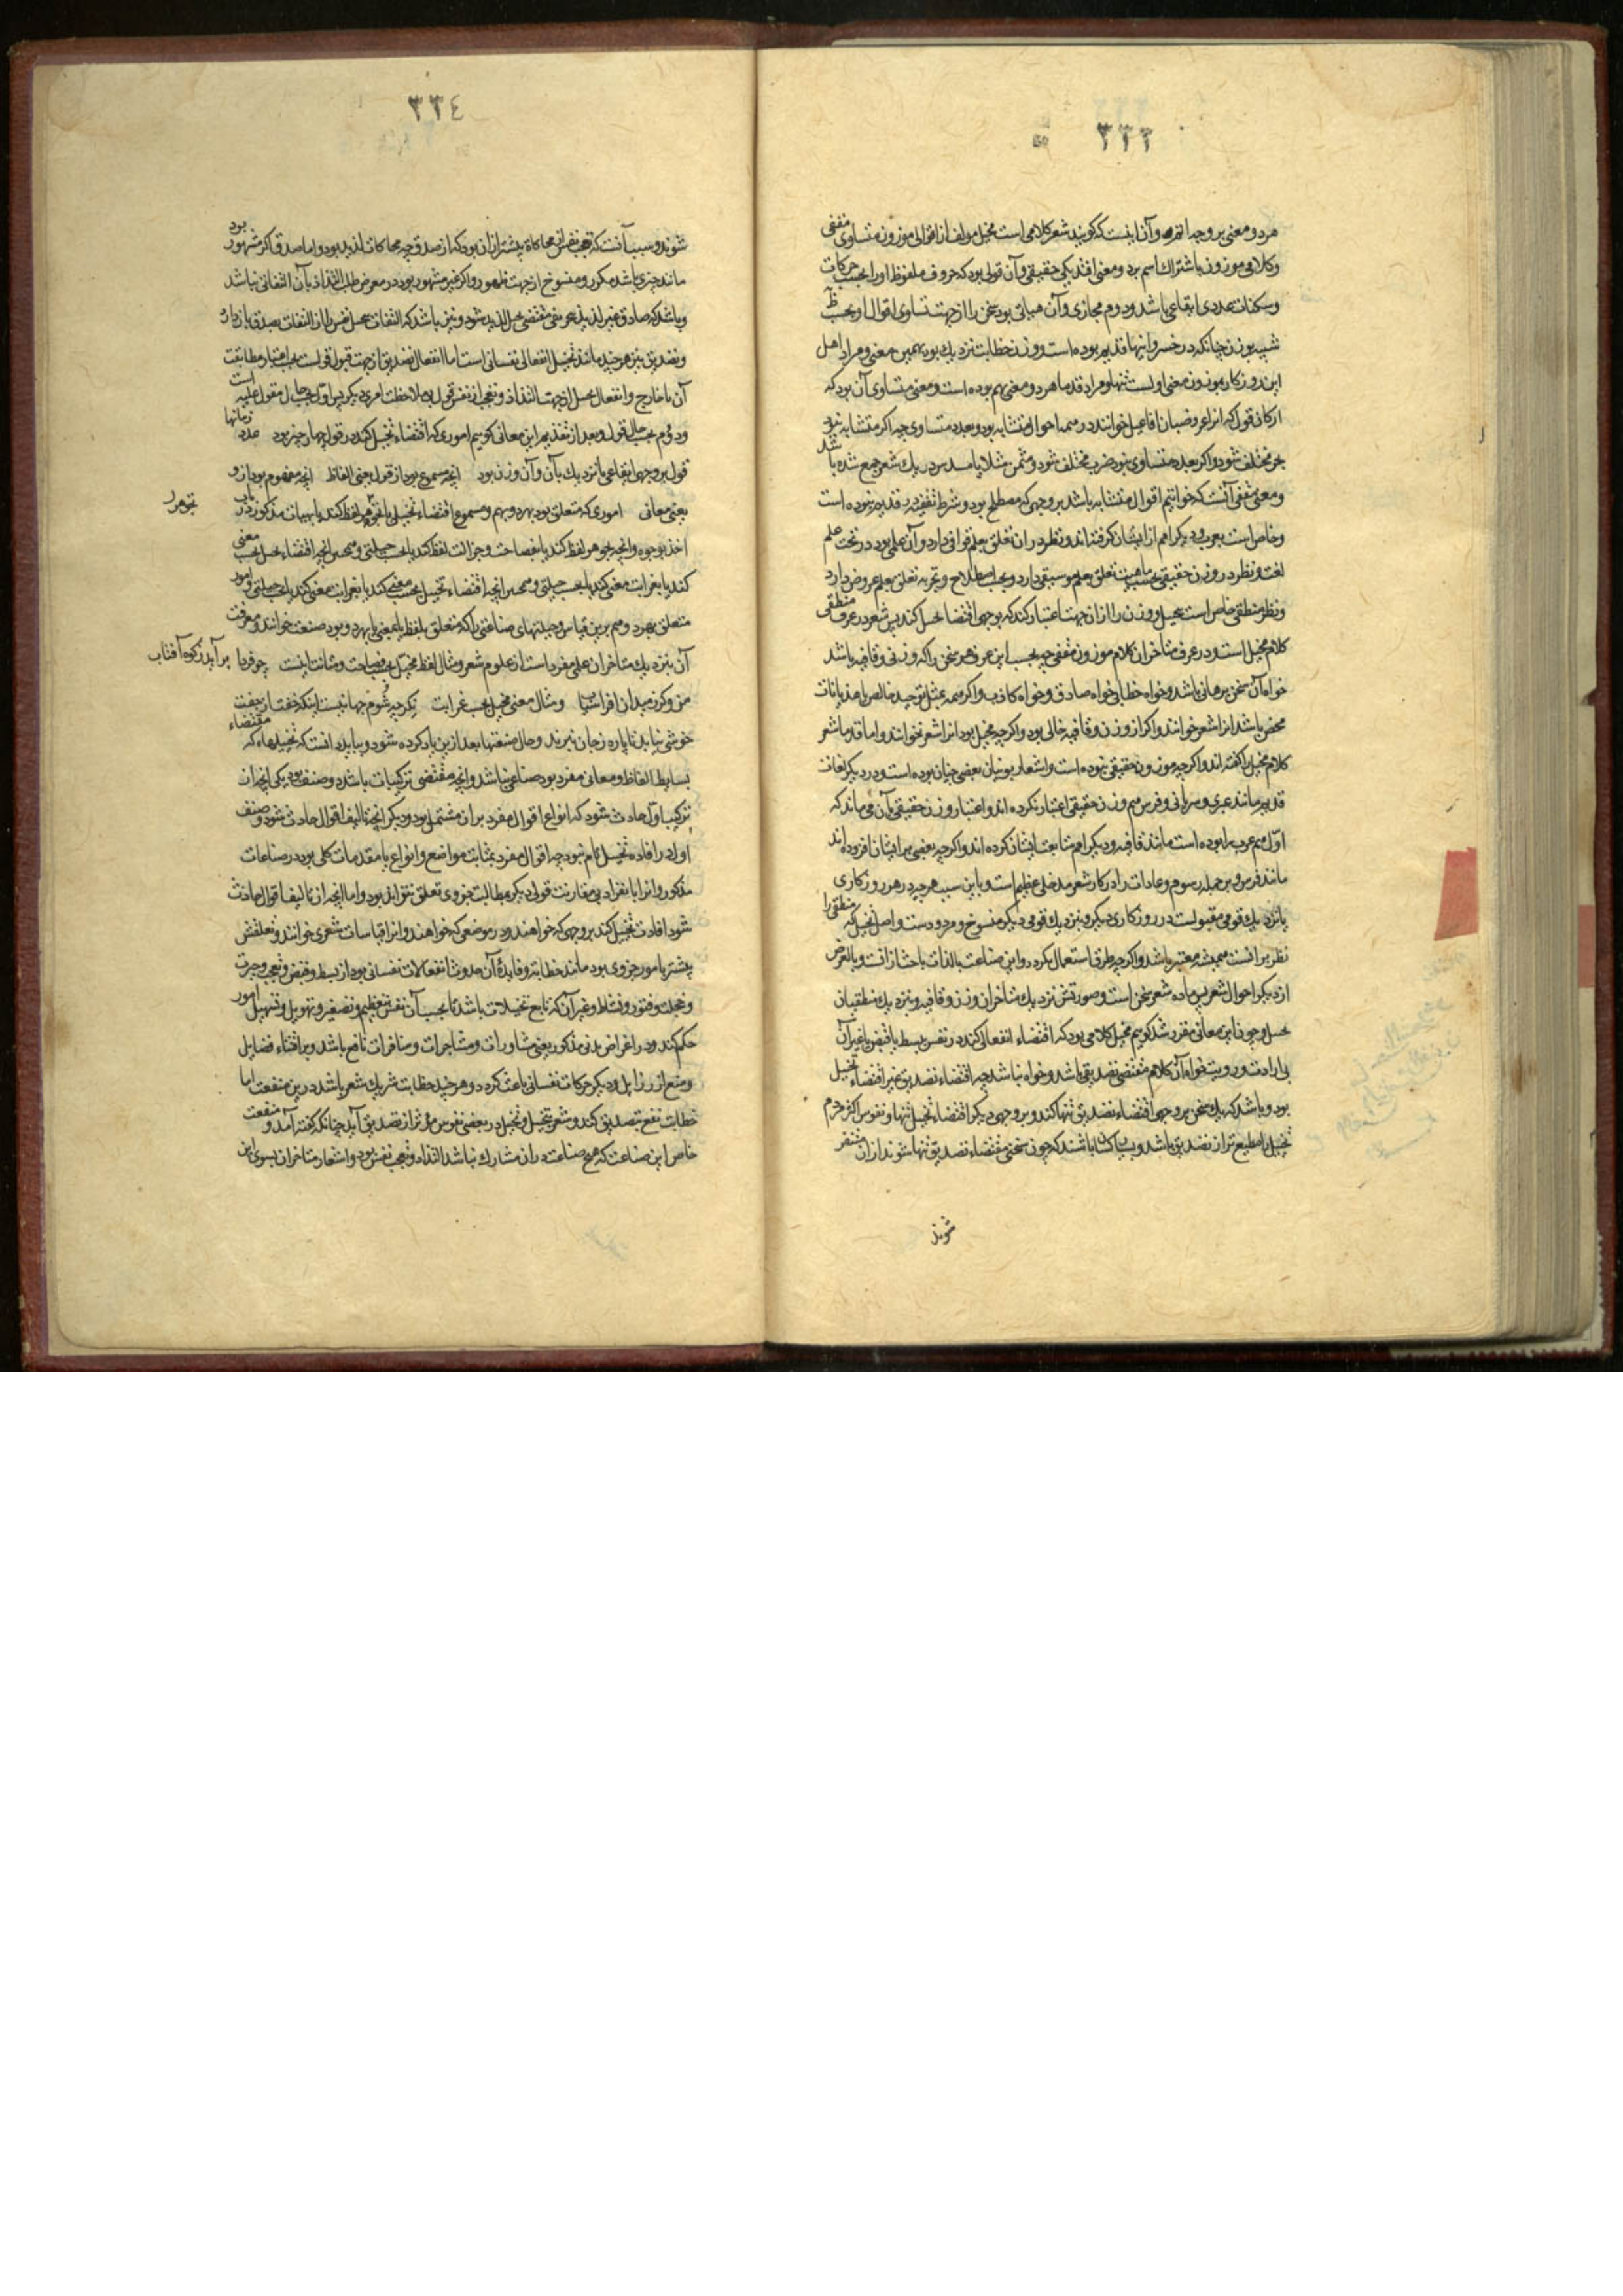 ٣٣٣
هر دو معنی بر وجه اتم و آن اینست که گویند شعر کلامی است مخیل مولف از اقوالی موزون متساوی مقفی
و کلام موزون باشتراك اسم بر دو معنی افتد یکی حقیقی و آن قولی بود که حروف ملفوظ او را بحسب حرکات
و سکنات عددی ایقاعی باشد و دوم مجازی و آن هیأتی بود سخن را از جهت تساوی اقوال او بحسب
شبیه بوزن چنانکه در خسروانیها قدیم بوده است و وزن خطابت نزدیك بود بهمین معنی و مراد اهل
این روزگار بموزون معنی اولست تنها و مراد قدما هر دو معنی بهم بوده است و معنی متساوی آن بود که
ارکان قول که انرا عروضیان افاعیل خوانند در همه احوال متشابه بود و بعدد متساوی چه اگر متشابه نبود
بحر مختلف شود و اگر بعدد متساوی نبود ضرب مختلف شود و مثمن مثلا با مسدس در یك شعر جمع شده باشد
و معنی مقفی آنست که خواتیم اقوال متشابه باشد بر وجهی که مصطلح بود و شرط تقفیه در قدیم نبوده است
و خاص است بعرب و دیگر امم از ایشان گرفته اند و نظر در ان تعلق بعلم قوافی دارد و آن علمی بود در تحت علم
لغت و نظر در وزن حقیقی بحسب ماهیت تعلق بعلم موسیقی دارد و بحسب اصطلاح و تجربه تعلق بعلم عروض دارد
و نظر منطقی خاص است بتخییل و وزن را از ان جهت اعتبار کند که بوجهی اقتضاء تخییل کند پس شعر در عرف منطقی
کلام مخیل است و در عرف متأخران کلام موزون مقفی چه بحسب این عرف هر سخن را که وزنی و قافیه باشد
خواه آن سخن برهانی باشد و خواه خطابی خواه صادق و خواه کاذب و اگر همه بمثل توحید خالص یا هذیانات
محض باشد انرا شعر خوانند و اگر از وزن و قافیه خالی بود و اگر چه مخیل بود انرا شعر نخوانند و اما قدما شعر
کلام مخیل را گفته اند و اگر چه موزون حقیقی نبوده است و اشعار یونیان بعضی چنان بوده است و در دیگر لغات
قدیم مانند عبری و سریانی و فرس هم وزن حقیقی اعتبار نکرده اند و اعتبار وزن حقیقی بآن می ماند که
اول هم عرب را بوده است مانند قافیه و دیگر امم متابعت ایشان کرده اند و اگر چه بعضی بر ایشان افزوده اند
مانند فرس و بر جمله رسوم و عادات را در کار شعر مدخلی عظیم است و باین سبب هر چه در هر روزگاری
یا نزدیك قومی مقبولست در روزگاری دیگر و بنزدیك قومی دیگر منسوخ و مردودست و اصل تخییل که منطقی را
نظر بر انست همیشه معتبر باشد و اگر چه طرق استعمال بگردد و این صناعت بالذات باحث از انست و بالعرض
از دیگر احوال شعر پس ماده شعر سخن است و صورتش نزدیك متأخران وزن و قافیه و بنزدیك منطقیان
تخییل و چون این معانی مقرر شد گوییم مخیل کلامی بود که اقتضاء انفعالی کند در نفس ببسط یا قبض یا غیر آن
بی ارادت و رویت خواه آن کلام مقتضی تصدیقی باشد و خواه نباشد چه اقتضاء تصدیق غیر اقتضاء تخییل
بود و باشد که یك سخن بر وجهی اقتضاء تصدیق تنها کند و بر وجهی دیگر اقتضاء تخییل تنها و نفوس اکثر مردم
تخییل را مطیع تر از تصدیق باشد و بسیار کسان باشند که چون سخنی مقتضاء تصدیق تنها شنوند از ان متنفر
شوند
٣٣٤
شوند و سبب آنست که تعجب نفس از محاکاة بیشتر از ان بود که از صدق چه محاکات لذیذ بود و اما صدق اگر مشهور بود
مانند چیزی باشد مکرر و منسوخ از جهت ظهور و اگر غیر مشهور بود در معرض طلب التذاذ بآن التفاتی نباشد
و باشد که صادق غیر لذیذ بتحریفی مقتضی تخییل لذیذ شود و نیز باشد که التفات بتخییل نفس را از التفات بصدق باز دارد
و تصدیق نیز هر چند مانند تخییل انفعالی نفسانی است اما انفعال تصدیق از جهت قبول قولست بحسب اعتبار مطابقت
آن با خارج و انفعال تخییل از جهت التذاذ و تعجب از نفس قول بی ملاحظت امری دیگر پس اول بحسب حال مقول علیه است
و دوم بحسب حال قول و بعد از تقدیم این معانی گوییم اموری که اقتضاء تخییل کند در قول چهار چیز بود عدد زمانها
قول بر وجهی ایقاعی یا نزدیك بآن و آن وزن بود انچه مسموع بود از قول یعنی الفاظ انچه مفهوم بود از و
یعنی معانی اموری که متعلق بود بهر دو بهم و مسموع اقتضاء تخییل یا بجوهر لفظ کند یا بهیات مذکور در باب
بجوهر
اخذ بوجوه و انچه بجوهر لفظ کند یا بفصاحت و جزالت لفظ کند یا بحسب حیلتی و همچنین انچه اقتضاء تخییل بحسب معنی
کند یا بغرابت معنی کند یا بحسب حیلتی و همچنین انچه اقتضاء تخییل بحسب معنی کند یا بغرابت معنی کند یا بحسب حیلتی و امور
متعلق بهر دو هم برین قیاس و حیلتهای صناعتی را که متعلق بلفظ یا بمعنی یا بهر دو بود صنعت خوانند و معرفت
آن بنزدیك متأخران علمی مفرد است از علوم شعر و مثال لفظ مخیل بحسب فصاحت و متانت اینست چو فردا برآید ز کوه آفتاب
من و گرز و میدان و افراسیاب و مثال معنی مخیل بحسب غرابت نگر چه شوم جهانیست اینکه جفت از جفت
خوشی نیابد تا پاره ز جان نبرند و حال صنعتها بعد ازین یاد کرده شود و بباید دانست که تخییلهاء که مقتضاء
بسایط الفاظ و معانی مفرد بود صناعی نباشد و انچه مقتضی ترکیبات باشد دو صنف بود یکی انچه از ان
ترکیب اول حادث شود که انواع اقوال مفرد بر ان مشتمل بود و دیگر انچه بتالیف اقوال حادث شود و صنف
اول در افاده تخییل تام نبود چه اقوال مفرد بمثابت مواضع و انواع یا مقدمات کلی بود در صناعات
مذکور و انرا بانفراد بی مقارنت قولی دیگر بمطالب جزوی تعلق نتواند بود و اما انچه از تالیف اقوال حادث
شود افادت تخییل کند بر وجهی که خواهند و در موضعی که خواهند و انرا قیاسات شعری خوانند و تعلقش
بیشتر بامور جزوی بود مانند خطابت و فایدۀ آن حدوث انفعالات نفسانی بود از بسط و قبض و تعجب و حیرت
و خجلت و فتور و نشاط و غیر آن که تابع تخیلات باشد تا بحسب آن نفس بتعظیم و تصغیر و تهویل و تسهیل امور
حکم کند و در اغراض مدنی مذکور یعنی مشاورات و مشاجرات و منافرات نافع باشد و بر اقتناء فضایل
و منع از رزایل و دیگر حرکات نفسانی باعث گردد و هر چند خطابت شریك شعر باشد درین منفعت اما
خطابت نفع بتصدیق کند و شعر بتخییل و تخییل در بعضی نفوس مؤثرتر از تصدیق آید چنانکه گفته آمد و منفعت
خاص این صناعت که هیچ صناعت در ان مشارك نباشد التذاذ و تعجب نفس بود و اشعار متاخران بسوی این